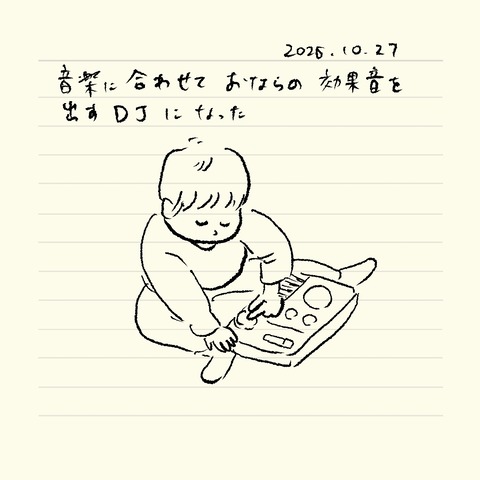 2025.10.27
音楽に合わせて おならの 効果音を
出す DJ に なった